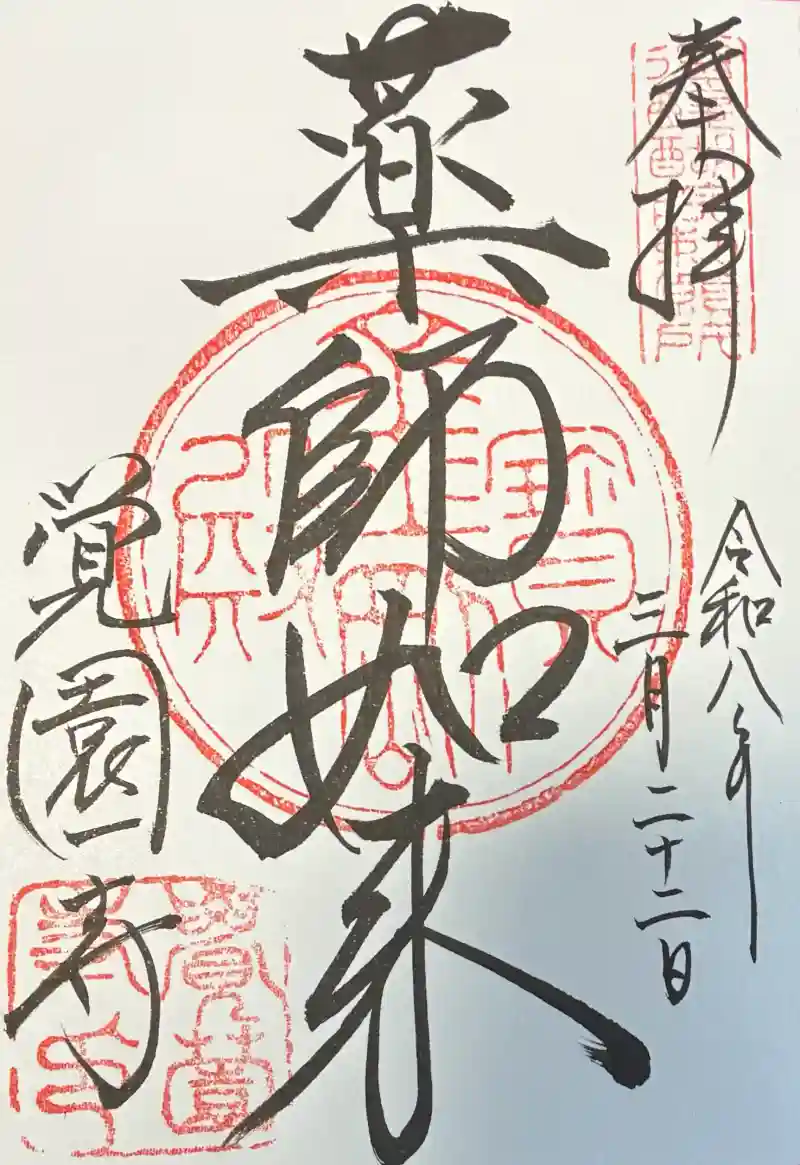 奉拝
令和八年
三月二十二日
薬師如来
覚園寺